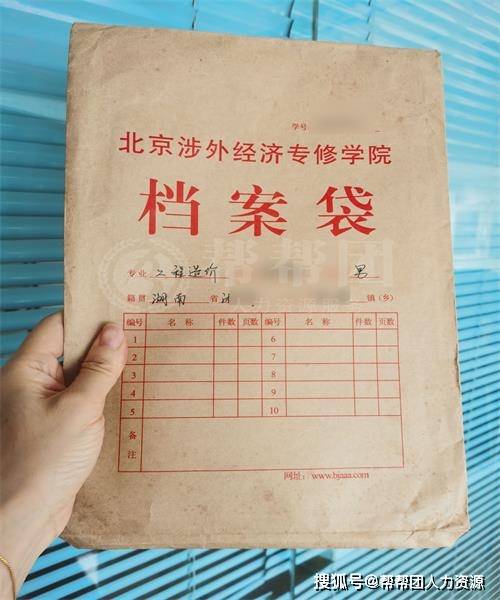 学号
北京涉外经济专修学院
档案袋
帮帮团
专业 工程造价 男
人力资源服
籍贯 湖南 省 镇(乡)
编号 名 称 件数 页数 编号 名 称 件数 页数
1 6
2 7
3 8
4 9
5 10
备注
网址: www.bjaaa.com
搜狐号@帮帮团人力资源